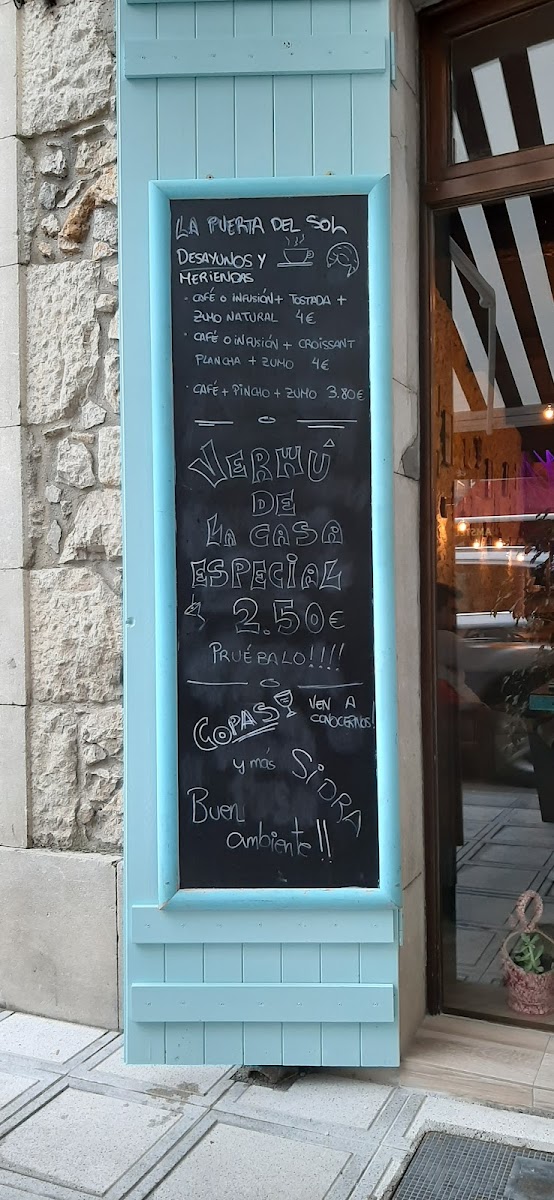 LA PUERTA DEL SOL
DESAYUNOS Y
MERIENDAS
· CAFÉ O INFUSIÓN + TOSTADA +
ZUMO NATURAL 4€
· CAFÉ O INFUSIÓN + CROISSANT
PLANCHA + ZUMO 4€
· CAFÉ + PINCHO + ZUMO 3.80€
VERMÚ
DE
LA CASA
ESPECIAL
2.50€
PRUÉBALO!!!!
COPAS
VEN A
CONOCERNOS!
y más
SiDRA
Buen
ambiente!!